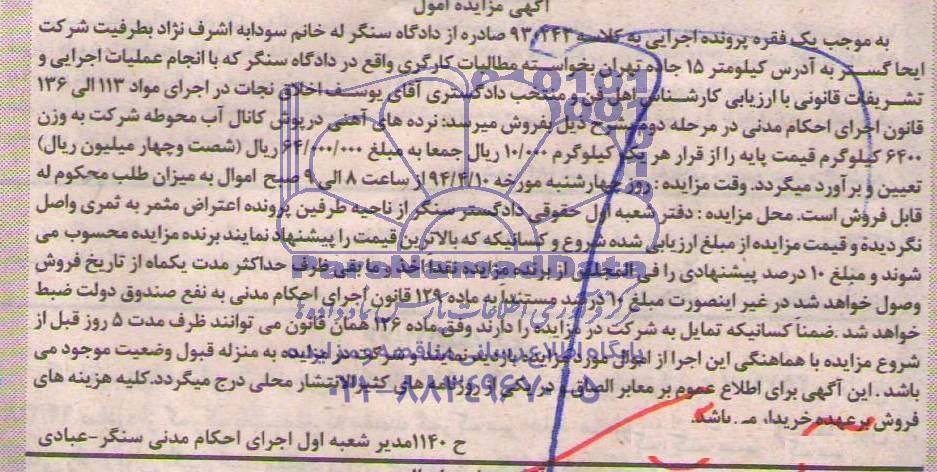 آگهی مزایده اموال
به موجب یک فقره پرونده اجرایی به کلاسه ۹۳۰۴۴۳ صادره از دادگاه سنگر له خانم سودابه اشرف نژاد بطرفیت شرکت
ایحا گستر به آدرس کیلومتر ۱۵ جاده تهران بخواسته مطالبات کارگری واقع در دادگاه سنگر که با انجام عملیات اجرایی و
تشریفات قانونی با ارزیابی کارشناس اهل فن و منتخب دادگستری آقای یوسف اخلاق نجات در اجرای مواد ۱۱۳ الی ۱۳۶
قانون اجرای احکام مدنی در مرحله دوم بشرح ذیل بفروش میرسد: نرده های آهنی درپوش کانال آب محوطه شرکت به وزن
۶۴۰۰ کیلوگرم قیمت پایه را از قرار هر یک کیلوگرم ۱۰/۰۰۰ ریال جمعا به مبلغ ۶۴/۰۰۰/۰۰۰ ریال (شصت وچهار میلیون ریال)
تعیین و برآورد میگردد. وقت مزایده : روز چهارشنبه مورخه ۹۴/۴/۱۰ از ساعت ۸ الی ۹ صبح اموال به میزان طلب محکوم له
قابل فروش است. محل مزایده : دفتر شعبه اول حقوقی دادگستر سنگر از ناحیه طرفین پرونده اعتراض مثمر به ثمری واصل
نگردیده و قیمت مزایده از مبلغ ارزیابی شده شروع و کسانیکه که بالاترین قیمت را پیشنهاد نمایند برنده مزایده محسوب می
شوند و مبلغ ۱۰ درصد پیشنهادی را فی المجلس از برنده مزایده نقدا اخذ و ما بقی ظرف حداکثر مدت یکماه از تاریخ فروش
وصول خواهد شد در غیر اینصورت مبلغ ۱۰ درصد مستندا به ماده ۱۲۹ قانون اجرای احکام مدنی به نفع صندوق دولت ضبط
خواهد شد .ضمنا کسانیکه تمایل به شرکت در مزایده را دارند وفق ماده ۱۲۶ همان قانون می توانند ظرف مدت ۵ روز قبل از
شروع مزایده با هماهنگی این اجرا از اموال مورد مزایده بازدید نمایند و شرکت در مزایده به منزله قبول وضعیت موجود می
باشد . این آگهی برای اطلاع عموم بر معابر الصاق و در یکی از روزنامه های کثیرالانتشار محلی درج میگردد.کلیه هزینه های
فروش برعهده خریدار می باشد.
ح ۱۱۴۰ مدیر شعبه اول اجرای احکام مدنی سنگر-عبادی